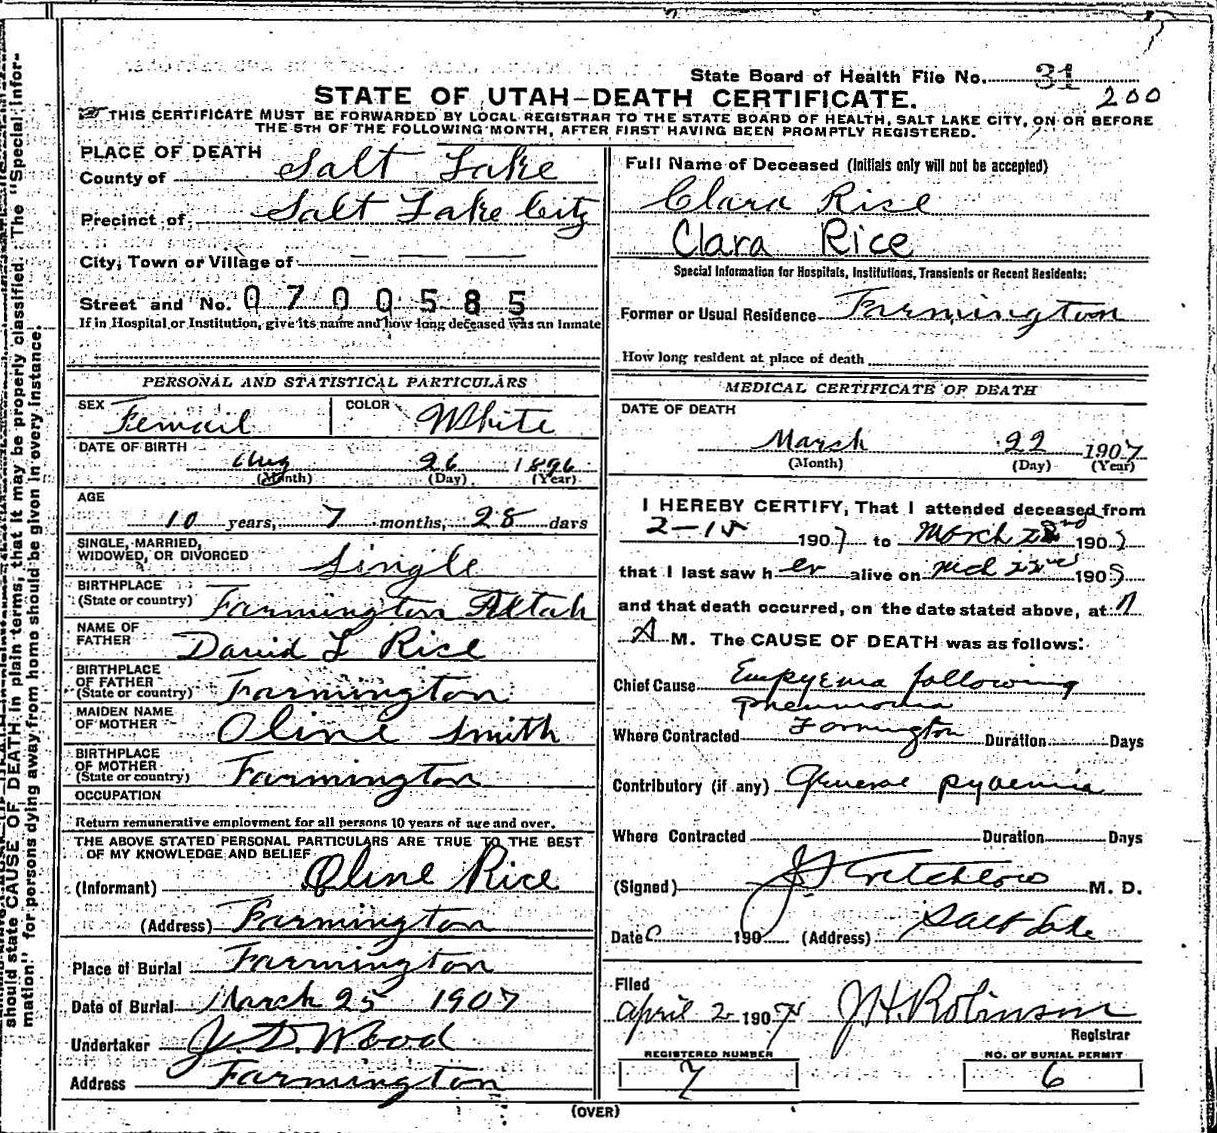 State Board of Health File No. 31
200
STATE OF UTAH—DEATH CERTIFICATE.
THIS CERTIFICATE MUST BE FORWARDED BY LOCAL REGISTRAR TO THE STATE BOARD OF HEALTH, SALT LAKE CITY, ON OR BEFORE
THE 5TH OF THE FOLLOWING MONTH, AFTER FIRST HAVING BEEN PROMPTLY REGISTERED.
should state CAUSE OF DEATH in plain terms, that it may be properly classified. The "Special Infor-
mation" for persons dying away from home should be given in every instance.
PLACE OF DEATH
County of Salt Lake
Precinct of Salt Lake City
City, Town or Village of — — —
Street and No. 0700585
If in Hospital or Institution, give its name and how long deceased was an Inmate
PERSONAL AND STATISTICAL PARTICULARS
SEX Femail COLOR White
DATE OF BIRTH
Aug 26 1896
(Month) (Day) (Year)
AGE
10 years, 7 months, 28 days
SINGLE, MARRIED,
WIDOWED, OR DIVORCED Single
BIRTHPLACE
(State or country) Farmington Utah
NAME OF
FATHER David L Rice
BIRTHPLACE
OF FATHER
(State or country) Farmington
MAIDEN NAME
OF MOTHER Oline Smith
BIRTHPLACE
OF MOTHER
(State or country) Farmington
OCCUPATION
Return remunerative employment for all persons 10 years of age and over.
THE ABOVE STATED PERSONAL PARTICULARS ARE TRUE TO THE BEST
OF MY KNOWLEDGE AND BELIEF
(Informant) Oline Rice
(Address) Farmington
Place of Burial Farmington
Date of Burial March 25 1907
Undertaker J. D. Wood
Address Farmington
Full Name of Deceased (Initials only will not be accepted)
Clara Rise
Clara Rice
Special Information for Hospitals, Institutions, Transients or Recent Residents:
Former or Usual Residence Farmington
How long resident at place of death
MEDICAL CERTIFICATE OF DEATH
DATE OF DEATH
March 22 1907
(Month) (Day) (Year)
I HEREBY CERTIFY, That I attended deceased from
2-15 1907 to March 22nd 1907
that I last saw her alive on Mch 22nd 1907
and that death occurred, on the date stated above, at
A M. The CAUSE OF DEATH was as follows:
Chief Cause Empyema following
Pneumonia
Where Contracted Farmington Duration Days
Contributory (if any) General pyaemia
Where Contracted Duration Days
(Signed) M. D.
Date 190 (Address) Salt Lake
Filed
April 2 1907 J. H. Robinson
Registrar
REGISTERED NUMBER
7
NO. OF BURIAL PERMIT
6
(OVER)